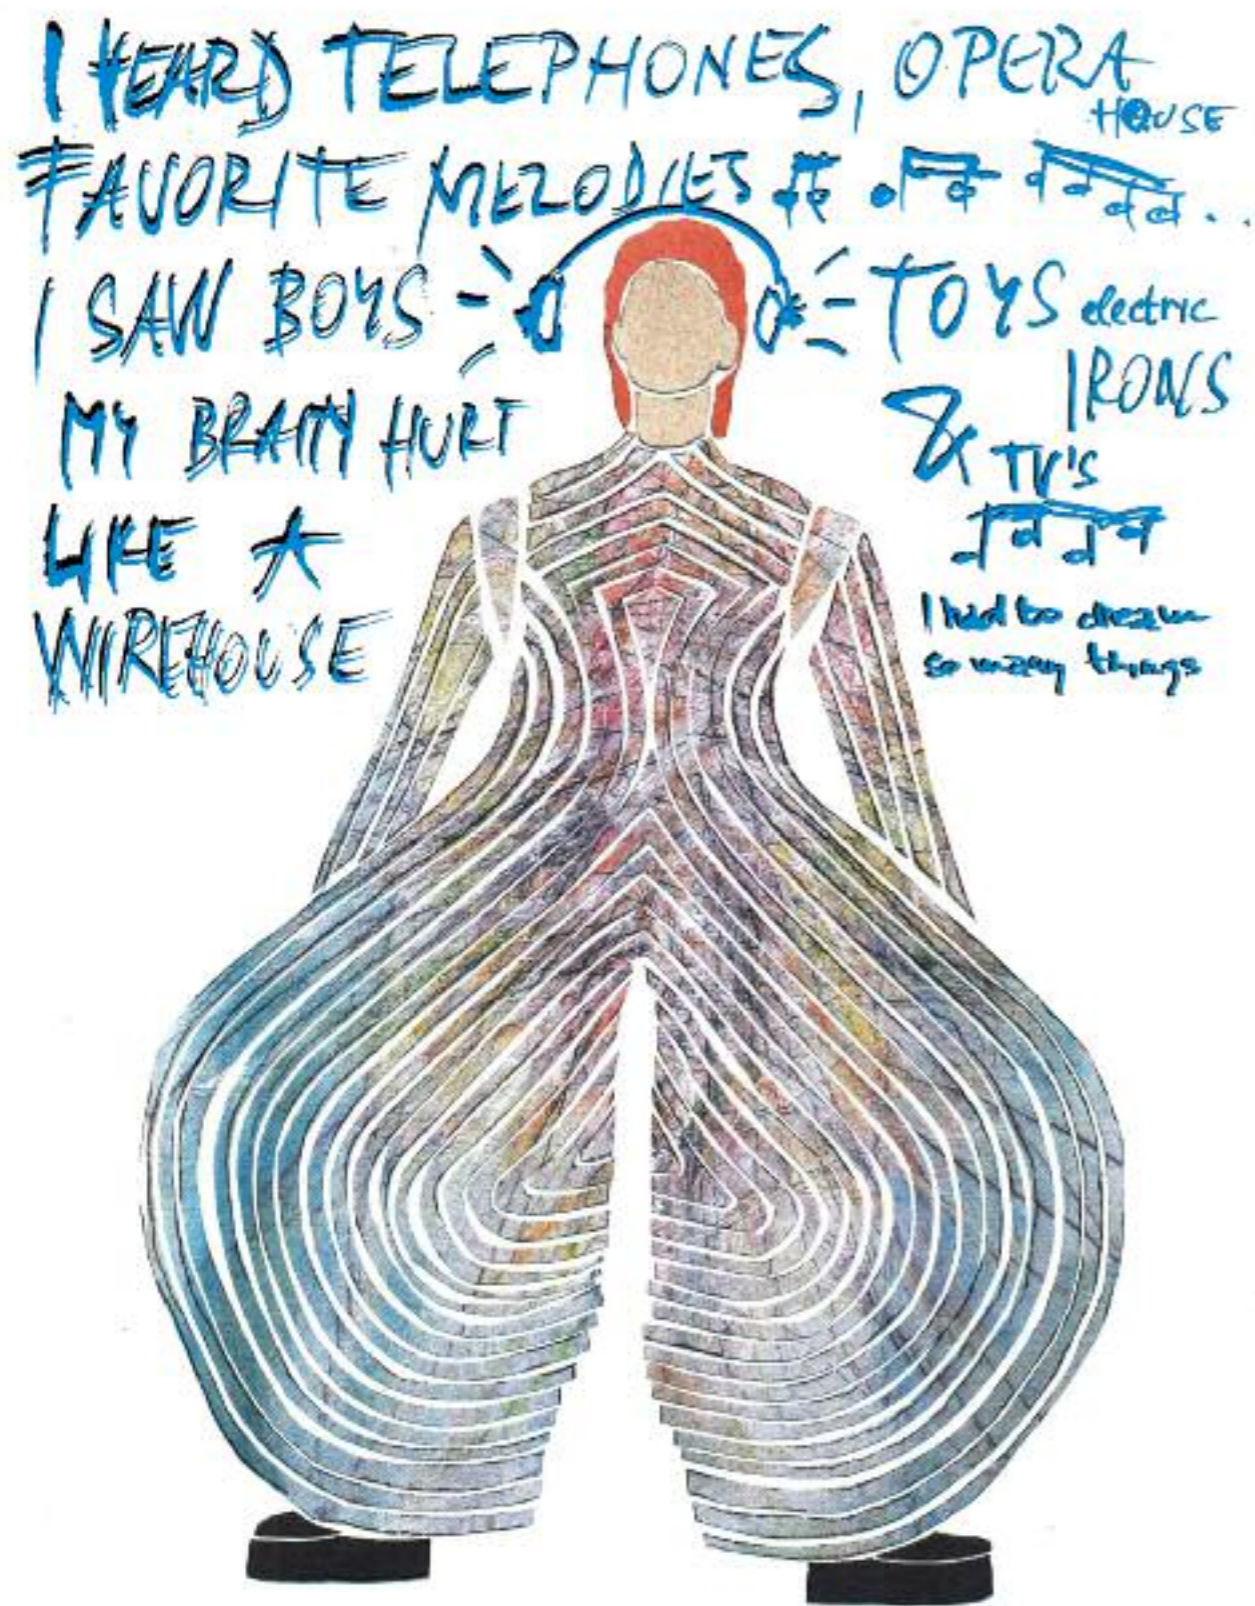 I HEARD TELEPHONES, OPERA HOUSE
FAVORITE MELODIES
I SAW BOYS TOYS electric IRONS
MY BRAIN HURT & TV'S
LIKE A
WIREHOUSE
I had to dream
so many things